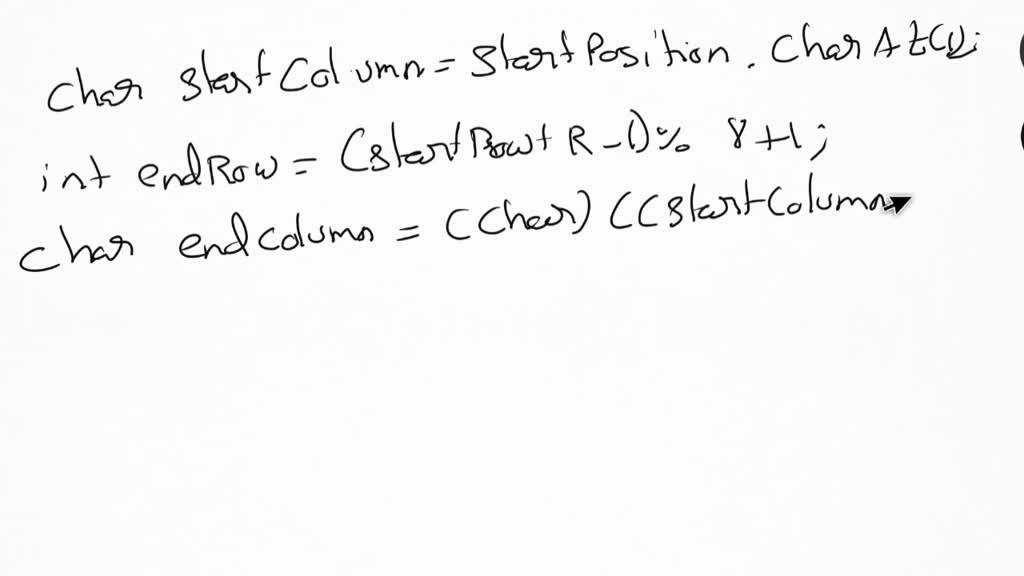 char startColumn = startPosition.charAt(1);
int endRow = (startRow + R - 1) % 8 + 1;
char endcolumn = (char) ((startColumn